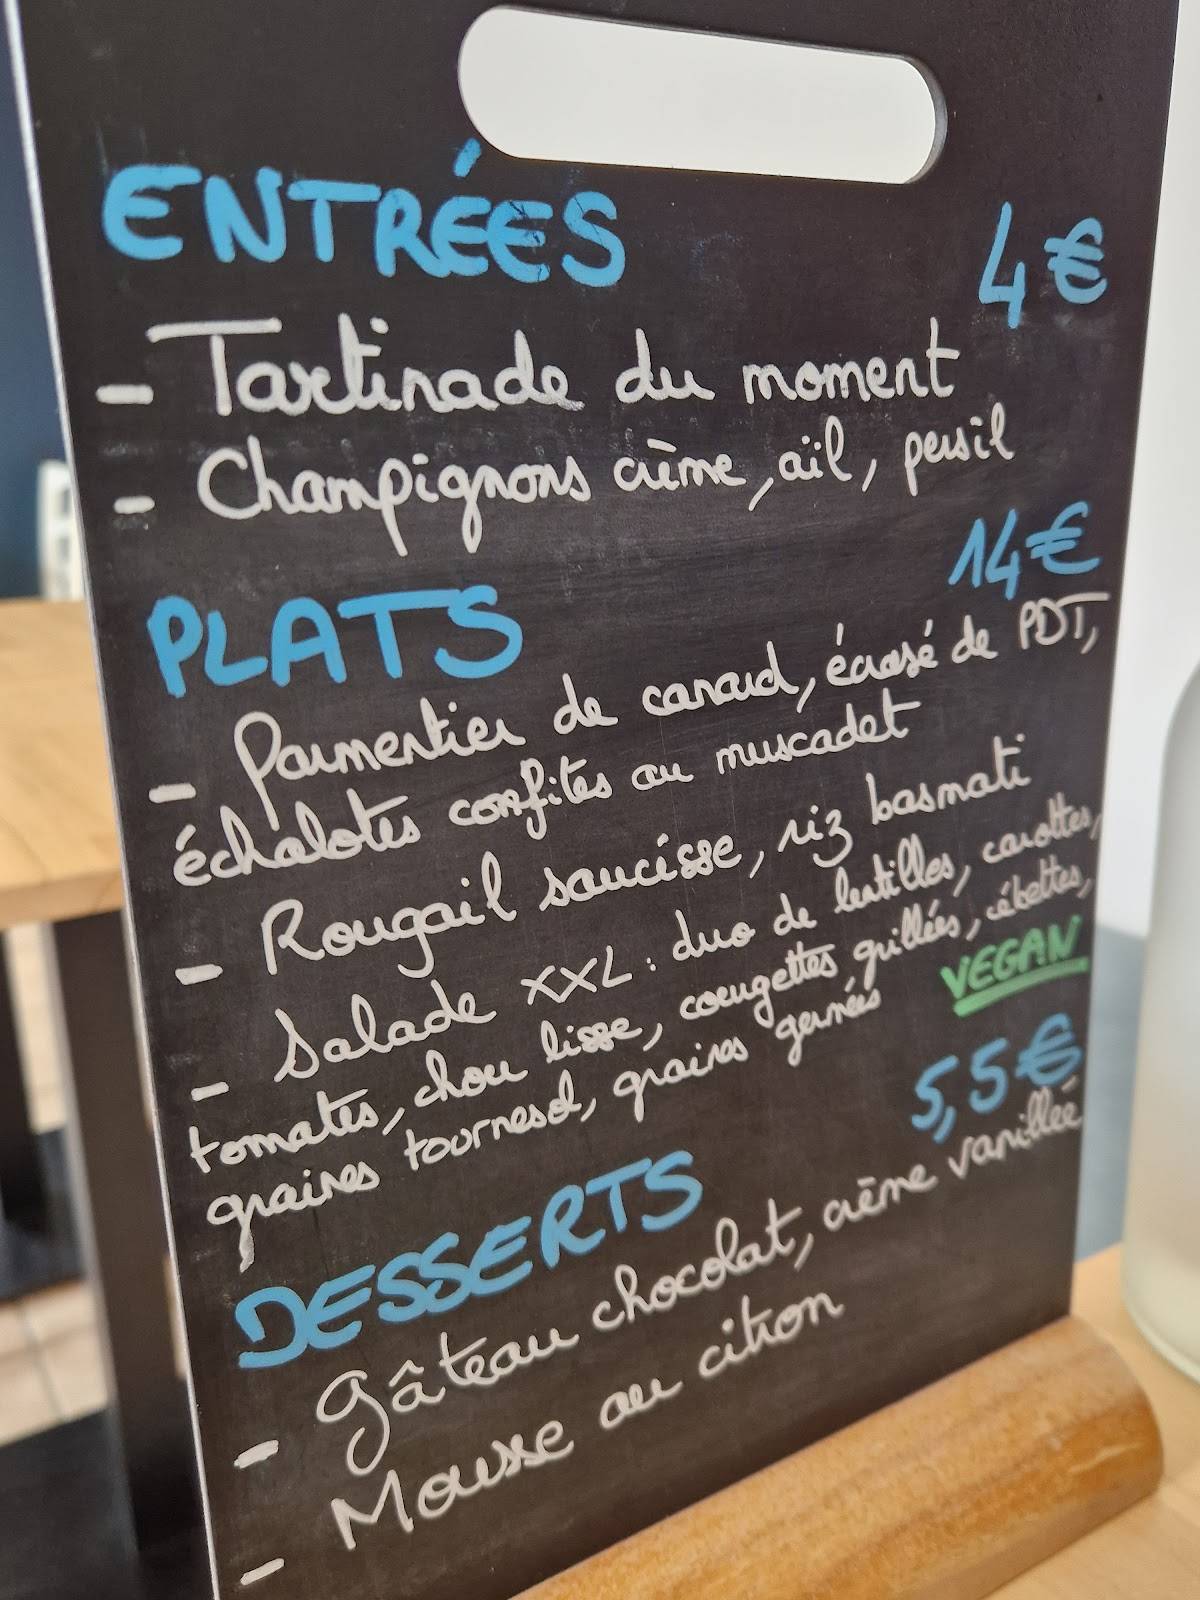 ENTRÉES 4€
- Tartinade du moment
- Champignons crème, aïl, persil
PLATS 14€
- Parmentier de canard, écrasé de PDT,
échalotes confites au muscadet
- Rougail saucisse, riz basmati
- Salade XXL : duo de lentilles, carottes,
tomates, chou lisse, courgettes grillées, cébettes,
graines tournesol, graines germées VEGAN
DESSERTS 5,5€
- Gâteau chocolat, crème vanillée
- Mousse au citron